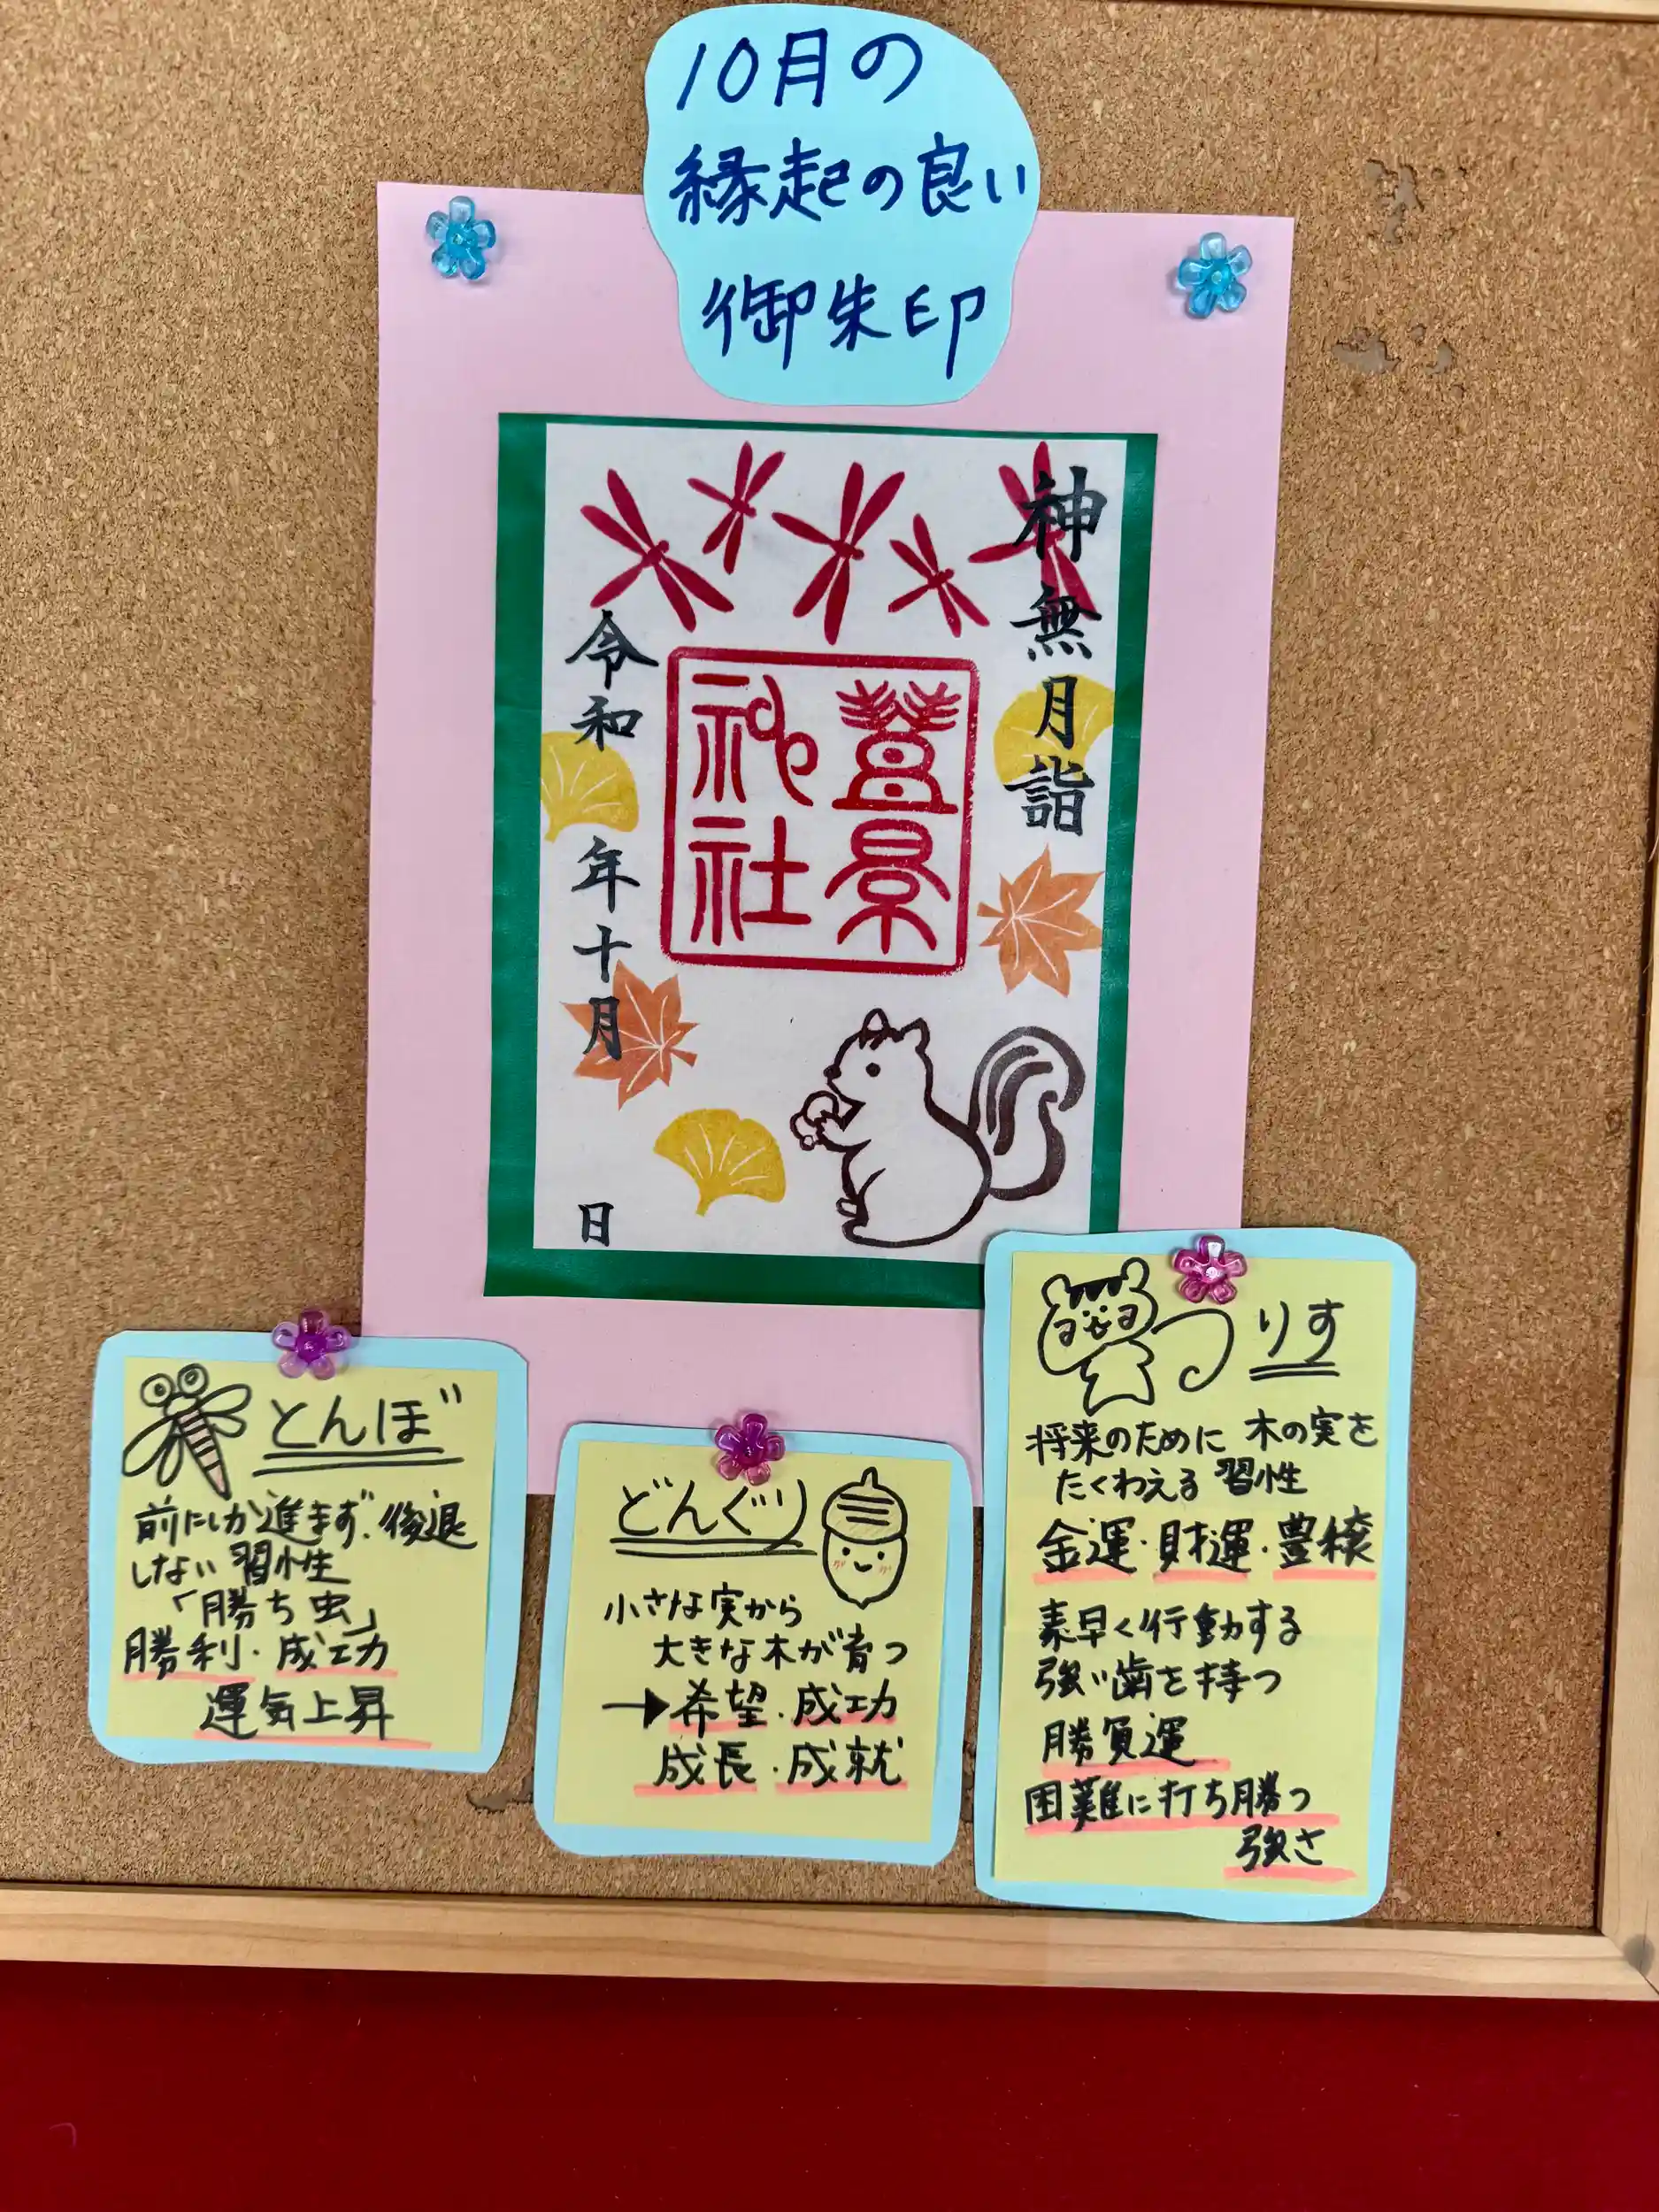 10月の
縁起の良い
御朱印
神無月詣
神社
令和 年十月 日
とんぼ
前にしか進まず、後退
しない習性
「勝ち虫」
勝利・成功
運気上昇
どんぐり
小さな実から
大きな木が育つ
→希望・成功
成長・成就
りす
将来のために木の実を
たくわえる習性
金運・財運・豊穣
素早く行動する
強い歯を持つ
勝負運
困難に打ち勝つ
強さ